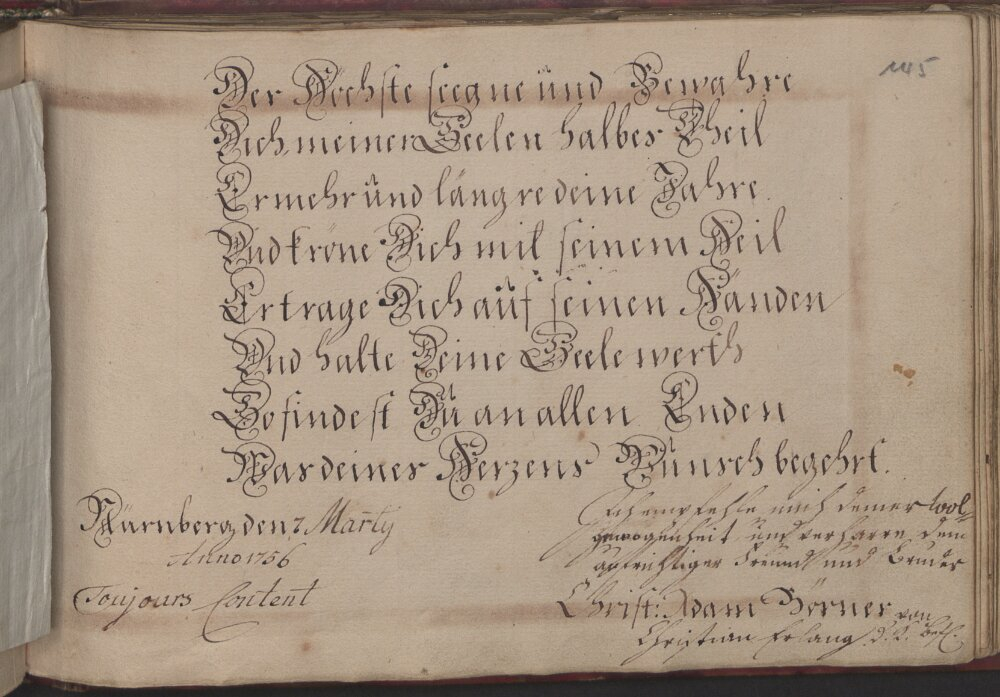 145
Der Höchste seegne und Bewahre
Dich meiner Seelen halbes Theil
Er mehr und längre deine Jahre
Und kröne Dich mit seinem Heil
Er trage Dich auf seinen Händen
Und halte Deine Seele werth
So findest Du an allen Enden
Was deines Herzens Wunsch begehrt.
Nürnberg den 7 Marty
Anno 1756
Toujours Content
Ich empfehle mich deiner Wol-
gewogenheit und verharre dein
aufrichtiger Freund und Bruder
Christ: Adam Börner von
Christian Erlang